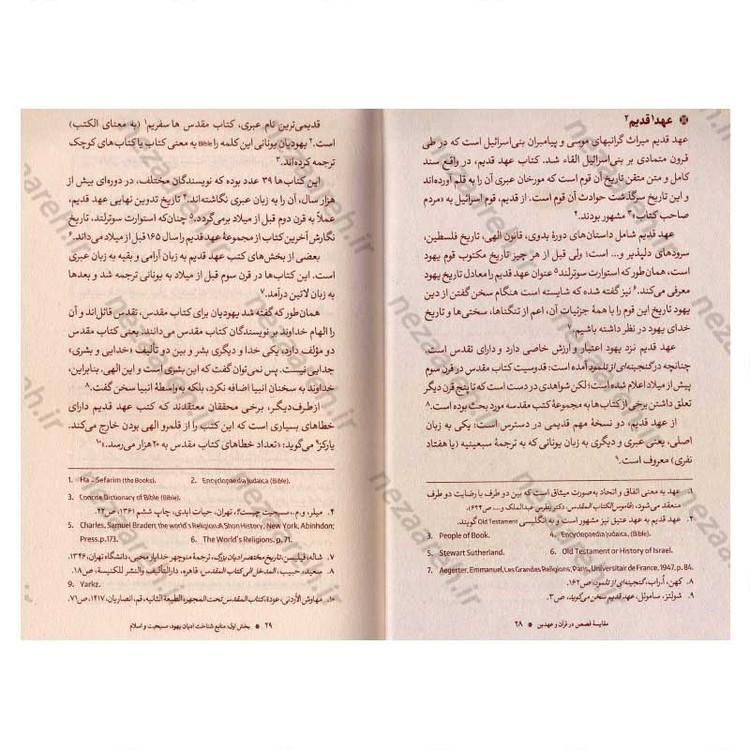 عهد۱ قدیم۲
عهد قدیم میراث گرانبهای موسی و پیامبران بنی‌اسرائیل است که در طی
قرون متمادی بر بنی‌اسرائیل القاء شد. کتاب عهد قدیم، در واقع سند
کامل و متن متقن تاریخ آن قوم است که مورخان عبری آن را به قلم آورده‌اند
و این تاریخ سرگذشت حوادث آن قوم است. از قدیم، قوم اسرائیل به «مردم
صاحب کتاب»۳ مشهور بودند.۴
عهد قدیم شامل داستان‌های دورهٔ بدوی، قانون الهی، تاریخ فلسطین،
سرودهای دلپذیر و... است؛ ولی قبل از هر چیز تاریخ مکتوب قوم یهود
است، همان‌طور که استوارت سوترلند۵ عنوان عهد قدیم را معادل تاریخ یهود
معرفی می‌کند.۶ نیز گفته شده که شایسته است هنگام سخن گفتن از دین
یهود تاریخ این قوم را با همهٔ جزئیات آن، اعم از تنگناها، سختی‌ها و تاریخ
خدای یهود در نظر داشته باشیم.۷
عهد قدیم نزد یهود اعتبار و ارزش خاصی دارد و دارای تقدس است،
چنانچه در گنجینه‌ای از تلمود آمده است: قدوسیت کتاب مقدس در قرن سوم
پیش از میلاد اعلام شده است؛ لکن شواهدی در دست است که تا پنج قرن دیگر
تعلق داشتن برخی از کتاب‌ها به مجموعهٔ کتب مقدسه مورد بحث بوده است.۸
از عهد قدیم، دو نسخهٔ مهم قدیمی در دسترس است: یکی به زبان
اصلی، یعنی عبری و دیگری به زبان یونانی که به ترجمهٔ سبعینیه (یا هفتاد
نفری) معروف است.۹
۱. عهد به معنی اتفاق و اتحاد به‌صورت میثاق است که بین دو طرف با رضایت دو طرف
منعقد می‌شود، (قاموس الکتاب المقدس، دکتر بطرس عبدالملک و...، ص۶۴۴).
۲. عهد قدیم به عهد عتیق نیز مشهور است و به انگلیسی Old Testament گویند.
3. People of Book. 4. Encyclopaedia Judaica, (Bible).
5. Stewart Sutherland. 6. Old Testament or History of Israel.
7. Aegerter, Emmanuel, Les Grandes Religions, Paris, Universitair de France, 1947, p. 84.
۸. کهن، آ.راب، گنجینه‌ای از تلمود، ص۱۶۲.
۹. شولتز، ساموئل، عهد قدیم سخن می‌گوید، ص۳.
۲۸ ● مقایسهٔ قصص در قرآن و عهدین
قدیمی‌ترین نام عبری، کتاب مقدس ها سفریم۱ (به معنای الکتب)
است.۲ یهودیان یونانی این کلمه را Bible به معنی کتاب یا کتاب‌های کوچک
ترجمه کرده‌اند.۳
این کتاب‌ها ۳۹ عدد بوده که نویسندگان مختلف، در دوره‌ای بیش از
هزار سال، آن را به زبان عبری نگاشته‌اند.۴ تاریخ تدوین نهایی عهد قدیم،
عملاً به قرن دوم قبل از میلاد برمی‌گردد،۵ چنان‌که استوارت سوترلند، تاریخ
نگارش آخرین کتاب از مجموعهٔ عهد قدیم را سال ۱۶۵ قبل از میلاد می‌داند.۶
بعضی از بخش‌های کتب عهد قدیم به زبان آرامی و بقیه به زبان عبری
است. این کتاب‌ها در قرن سوم قبل از میلاد به یونانی ترجمه شد و بعدها
به زبان لاتین درآمد.۷
همان‌طور که گفته شد یهودیان برای کتاب مقدس، تقدس قائل‌اند و آن
را الهام خداوند بر نویسندگان کتاب مقدس می‌دانند. یعنی کتاب مقدس
دو مؤلف دارد، یکی خدا و دیگری بشر و بین دو تألیف «خدایی و بشری»
جدایی نیست. پس نمی‌توان گفت که این بشری است و این الهی، بنابراین،
خداوند به سخنان انبیا اضافه نکرد، بلکه به‌واسطهٔ انبیا سخن گفت.۸
از طرف دیگر، برخی محققان معتقدند که کتب عهد قدیم دارای
خطاهای بسیاری است که این کتب را از قلمرو الهی بودن خارج می‌کند.
یارکز۹ می‌گوید: «تعداد خطاهای کتاب مقدس به ۲۰هزار می‌رسد.»۱۰
1. Ha - Sefarim (the Books). 2. Encyclopaedia Judaica (Bible).
3. Concise Dictionary of Bible (Bible).
۴. میلر، و.م، مسیحیت چیست؟، تهران، حیات ابدی، چاپ ششم ۱۳۶۱، ص۲۲.
5. Charles, Samuel Braden, the world's Religion, A Short History, New York, Abinhdon;
Press p.173. 6. The World's Religions, p. 71.
۷. شاله، فیلیسین، تاریخ مختصر ادیان بزرگ، ترجمهٔ منوچهر خدایار محبی، دانشگاه تهران، ۱۳۴۶.
۸. سعید، حبیب، المدخل الی الکتاب المقدس، قاهره، دارالتألیف والنشر للکنیسة، ص۱۸.
9. Yarkz.
۱۰. مهاوش الأردنی، عودة، الکتاب المقدس تحت المجهر، الطبعة الثانیة، قم، انصاریان، ۱۴۱۷، ص۷۱.
بخش اول: منابع شناخت ادیان یهود، مسیحیت و اسلام ● ۲۹
nezaareh.ir